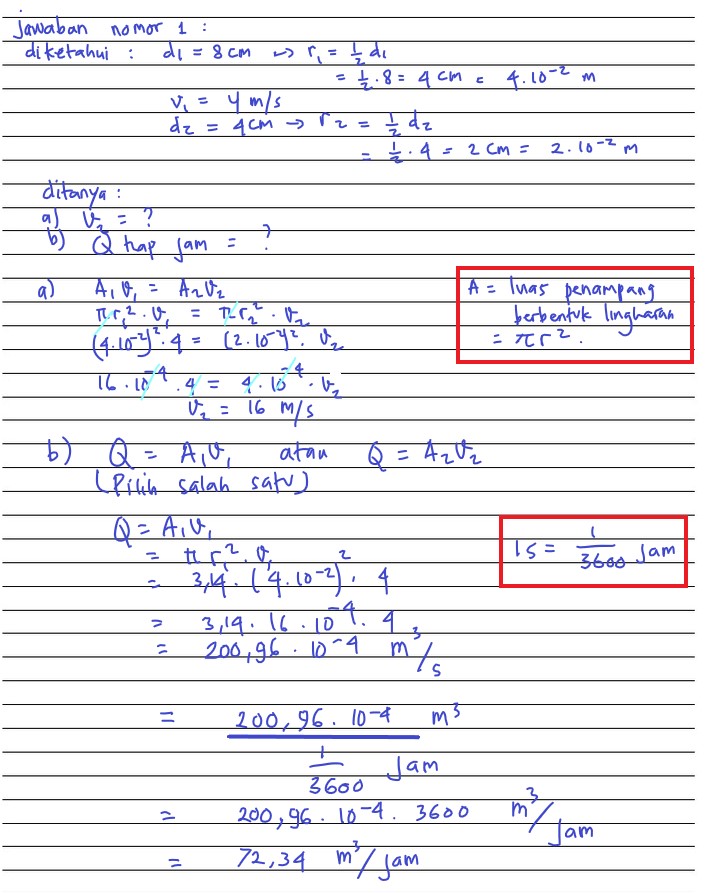 jawaban nomor 1 :
diketahui : d₁ = 8 cm ↝ r₁ = 1/2 d₁
= 1/2 . 8 = 4 cm = 4.10⁻² m
v₁ = 4 m/s
d₂ = 4 cm → r₂ = 1/2 d₂
= 1/2 . 4 = 2 cm = 2.10⁻² m
ditanya :
a) v₂ = ?
b) Q tiap jam = ?
a) A₁v₁ = A₂v₂
πr₁² . v₁ = πr₂² . v₂
(4.10⁻²)² . 4 = (2.10⁻²)² . v₂
16 . 10⁻⁴ . 4 = 4 . 10⁻⁴ . v₂
v₂ = 16 m/s
A = luas penampang
berbentuk lingkaran
= πr² .
b) Q = A₁v₁ atau Q = A₂v₂
(Pilih salah satu)
Q = A₁v₁
= π r₁² . v₁
= 3,14 . (4.10⁻²)² . 4
= 3,14 . 16 . 10⁻⁴ . 4
= 200,96 . 10⁻⁴ m³/s
1 s = 1/3600 jam
= 200,96 . 10⁻⁴ m³
1/3600 jam
= 200,96 . 10⁻⁴ . 3600 m³/jam
= 72,34 m³/jam